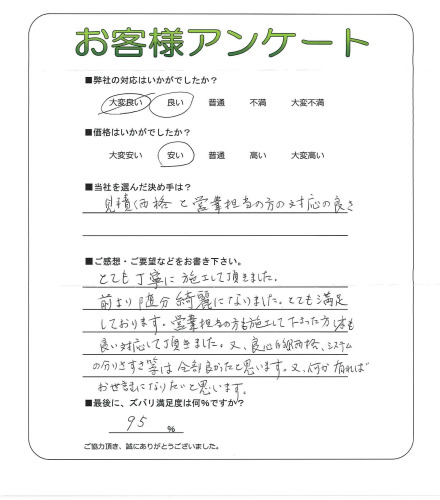 お客様アンケート
■弊社の対応はいかがでしたか?
大変良い 良い 普通 不満 大変不満
■価格はいかがでしたか?
大変安い 安い 普通 高い 大変高い
■当社を選んだ決め手は?
見積価格と営業担当の方の対応の良さ
■ご感想・ご要望などをお書き下さい。
とても丁寧に施工して頂きました。
前より随分綺麗になりました。とても満足
しております。営業担当の方も施工して下さった方々も
良い対応して頂きました。又、良心的価格、システム
の分りさすき等は全部良かったと思います。又、何か有れば
お世話になりたいと思います。
■最後に、ズバリ満足度は何%ですか?
95 %
ご協力頂き、誠にありがとうございました。